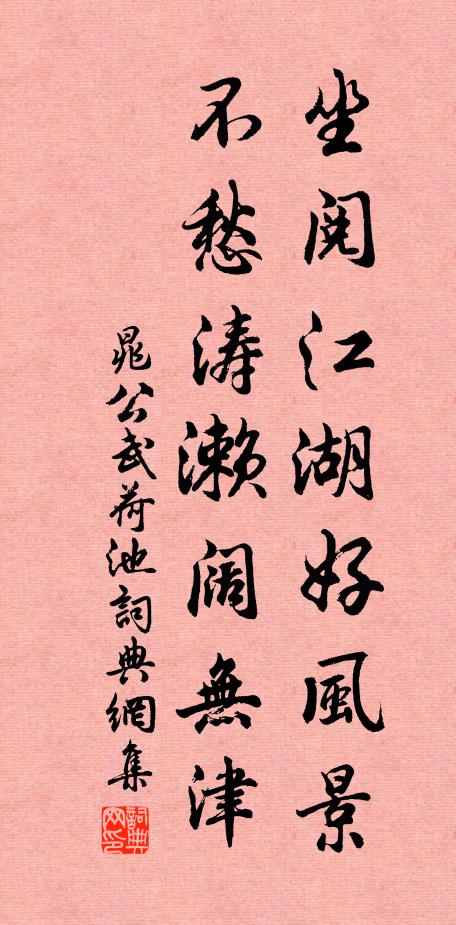 坐閱江湖好風景
不愁濤瀨闊無津
晁公武荷池詞典網集
詞典网印